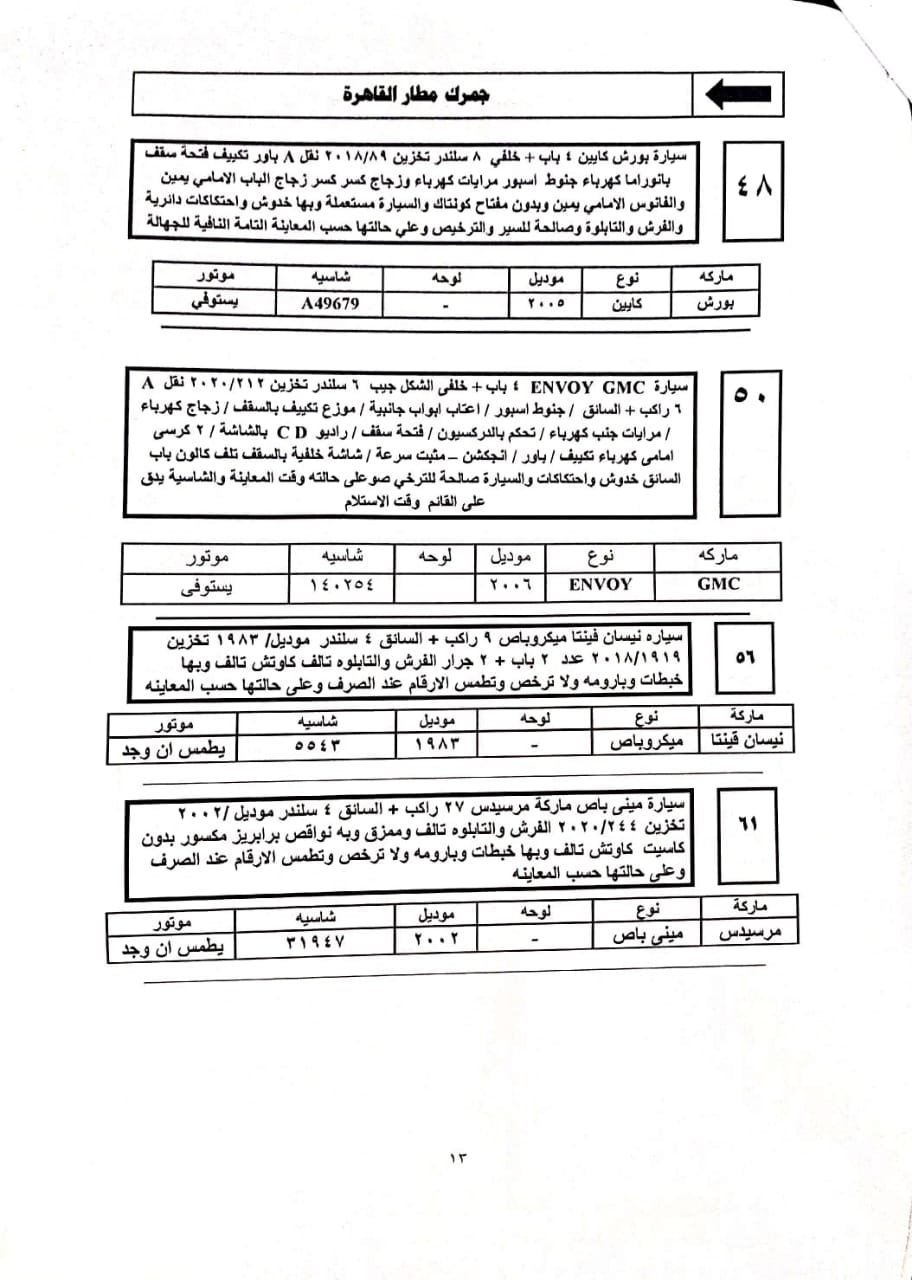 جمرك مطار القاهرة
٤٨
سيارة بورش كايين ٤ باب + خلفي ٨ سلندر تخزين ٢٠١٨/٨٩ نقل A باور تكييف فتحة سقف
بانوراما كهرباء جنوط اسبور مرايات كهرباء وزجاج كسر كسر زجاج الباب الامامي يمين
والفانوس الامامي يمين وبدون مفتاح كونتاك والسيارة مستعملة وبها خدوش واحتكاكات دائرية
والفرش والتابلوة وصالحة للسير والترخيص وعلي حالتها حسب المعاينة التامة النافية للجهالة
ماركه نوع موديل لوحه شاسيه موتور
بورش كايين ٢٠٠٥ - A49679 يستوفي
٥٠
سيارة ENVOY GMC ٤ باب + خلفى الشكل جيب ٦ سلندر تخزين ٢٠٢٠/٢١٢ نقل A
٦ راكب + السائق / جنوط اسبور / اعتاب ابواب جانبية / موزع تكييف بالسقف / زجاج كهرباء
/ مرايات جنب كهرباء / تحكم بالدركسيون / فتحة سقف / راديو C D بالشاشة / ٢ كرسى
امامى كهرباء تكييف / باور / انجكشن – مثبت سرعة / شاشة خلفية بالسقف تلف كالون باب
السائق خدوش واحتكاكات والسيارة صالحة للترخي صوعلى حالته وقت المعاينة والشاسية يدق
على القائم وقت الاستلام
ماركه نوع موديل لوحه شاسيه موتور
GMC ENVOY ٢٠٠٦ ١٤٠٢٥٤ يستوفى
٥٦
سياره نيسان فينتا ميكروباص ٩ راكب + السائق ٤ سلندر موديل/ ١٩٨٣ تخزين
٢٠١٨/١٩١٩ عدد ٢ باب + ٢ جرار الفرش والتابلوه تالف كاوتش تالف وبها
خبطات وبارومه ولا ترخص وتطمس الارقام عند الصرف وعلى حالتها حسب المعاينه
ماركة نوع موديل لوحه شاسيه موتور
نيسان ڤينتا ميكروباص ١٩٨٣ - ٥٥٤٣ يطمس ان وجد
٦١
سيارة مينى باص ماركة مرسيدس ٢٧ راكب + السائق ٤ سلندر موديل /٢٠٠٢
تخزين ٢٠٢٠/٢٤٤ الفرش والتابلوه تالف وممزق وبه نواقص برابريز مكسور بدون
كاسيت كاوتش تالف وبها خبطات وبارومه ولا ترخص وتطمس الارقام عند الصرف
وعلى حالتها حسب المعاينه
ماركة نوع موديل لوحه شاسيه موتور
مرسيدس مينى باص ٢٠٠٢ - ٣١٩٤٧ يطمس ان وجد
١٣